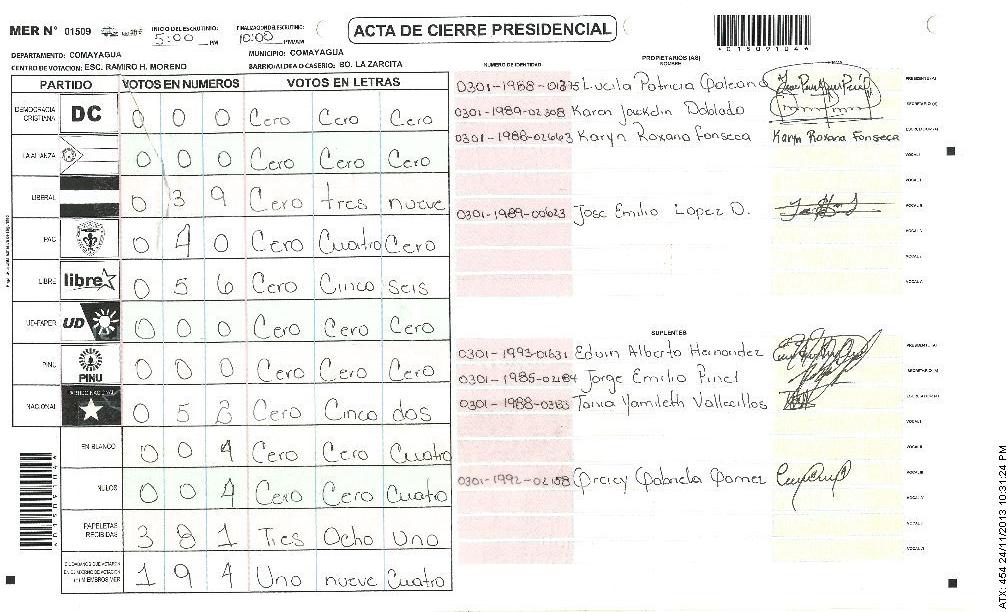 MER N° 01509 INICIO DEL ESCRUTINIO: 5:00 PM FINALIZACION DEL ESCRUTINIO: 10:00 PM/AM ACTA DE CIERRE PRESIDENCIAL
DEPARTAMENTO: COMAYAGUA MUNICIPIO: COMAYAGUA
CENTRO DE VOTACION: ESC. RAMIRO H. MORENO BARRIO/ALDEA O CASERIO: BO. LA ZARCITA
PARTIDO VOTOS EN NUMEROS VOTOS EN LETRAS
DEMOCRACIA CRISTIANA DC 0 0 0 Cero Cero Cero
LA ALIANZA 0 0 0 Cero Cero Cero
LIBERAL 0 3 9 Cero tres nueve
PAC 0 4 0 Cero Cuatro Cero
LIBRE libre 0 5 6 Cero Cinco seis
UD-FAPER UD 0 0 0 Cero Cero Cero
PINU PINU 0 0 0 Cero Cero Cero
NACIONAL PARTIDO NACIONAL 0 5 2 Cero Cinco dos
EN BLANCO 0 0 4 Cero Cero Cuatro
NULOS 0 0 4 Cero Cero Cuatro
PAPELETAS RECIBIDAS 3 8 1 Tres Ocho Uno
CIUDADANOS QUE VOTARON
MIEMBROS MER 1 9 4 Uno nueve Cuatro
PROPIETARIOS (AS)
NUMERO DE IDENTIDAD NOMBRE
0301-1988-01375 Lucila Patricia Galeano PRESIDENTE (A)
0301-1989-02308 Karen Jackelin Doblado SECRETARIO (A)
0301-1988-02663 Karyn Roxana Fonseca Karyn Roxana Fonseca ESCRUTADOR (A)
VOCAL I
0301-1989-00623 Jose Emilio Lopez D.
SUPLENTES
0301-1993-01631 Edwin Alberto Hernandez PRESIDENTE (A)
0301-1985-02184 Jorge Emilio Pinel SECRETARIO (A)
0301-1988-03163 Tania Yamileth Vallecillos ESCRUTADOR (A)
VOCAL I
0301-1992-02158 Greicy Gabriela Gomez
ATX: 454 24/11/2013 10:31:24 PM